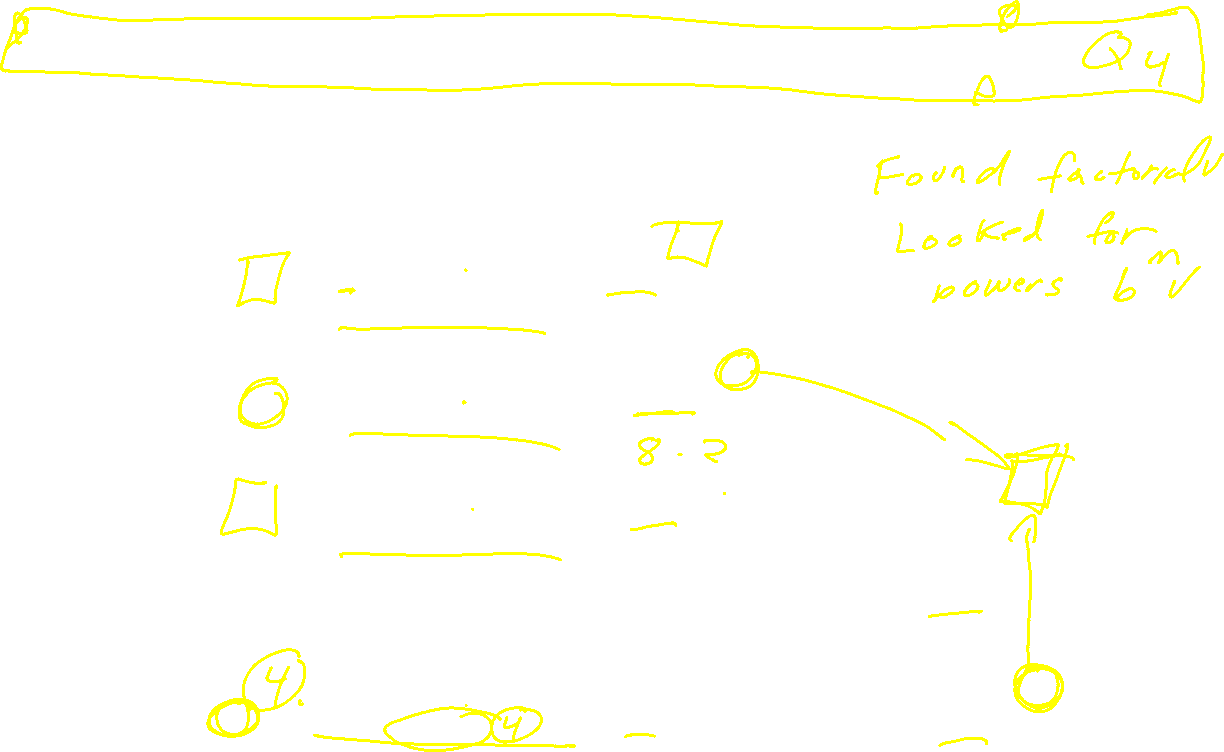 Q4
Found factorial ✓
Looked for
powers b^n ✓
8 - 2
4
4